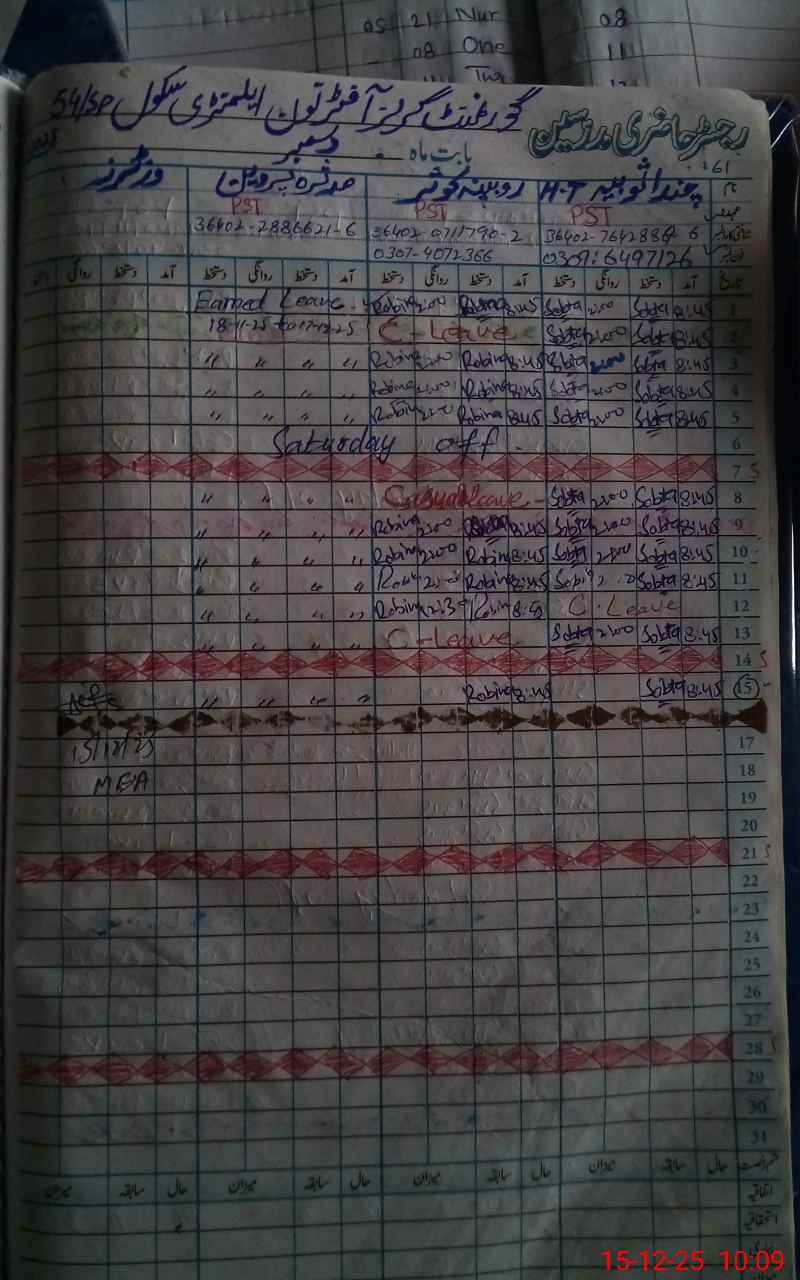 05 21 Nur 08
08 One 11
Two
گورنمنٹ گرلز آفٹرنون ایلمنٹری سکول 54/SP
رجسٹر حاضری مدرسین
بابت ماہ دسمبر
نام H.T روبینہ کوثر پروین وزٹرز
PST PST PST
36402-7642886-6 36402-0711790-2 36402-2886621-6
0309:6497126 0307-4072366
تاریخ آمد دستخط روانگی دستخط آمد دستخط روانگی دستخط آمد دستخط روانگی دستخط آمد دستخط روانگی
1 8:45 Sobia 2:00 Sobia 8:45 Robina 2:00 Robina Earned Leave
2 8:45 Sobia 2:00 Sobia C-Leave 18-11-25 to 17-12-25
3 8:45 Sobia 2:00 Sobia 8:45 Robina 2:00 Robina " " " "
4 8:45 Sobia 2:00 Sobia 8:45 Robina 2:00 Robina " " " "
5 8:45 Sobia 2:00 Sobia 8:45 Robina 2:00 Robina " " " "
6 Saturday off.
7 S
8 8:45 Sobia 2:00 Sobia Casual leave " " " "
9 8:45 Sobia 2:00 Sobia 8:45 Robina 2:00 Robina " " " "
10 8:45 Sobia 2:00 Sobia 8:45 Robina 2:00 Robina " " " "
11 8:45 Sobia Sobia 8:45 Robina " " " "
12 C.Leave Robina Robina " " " "
13 8:45 Sobia 2:00 Sobia C-Leave " " " "
14 S
15 8:45 Sobia 8:45 Robina " " " "
17 15/12/25
18 MEA
19
20
21 S
22
23
24
25
26
27
28 S
29
30
31
حال سابقہ میزان حال سابقہ میزان حال سابقہ میزان حال سابقہ میزان
اتفاقیہ
استحقاقیہ
15-12-25 10:09